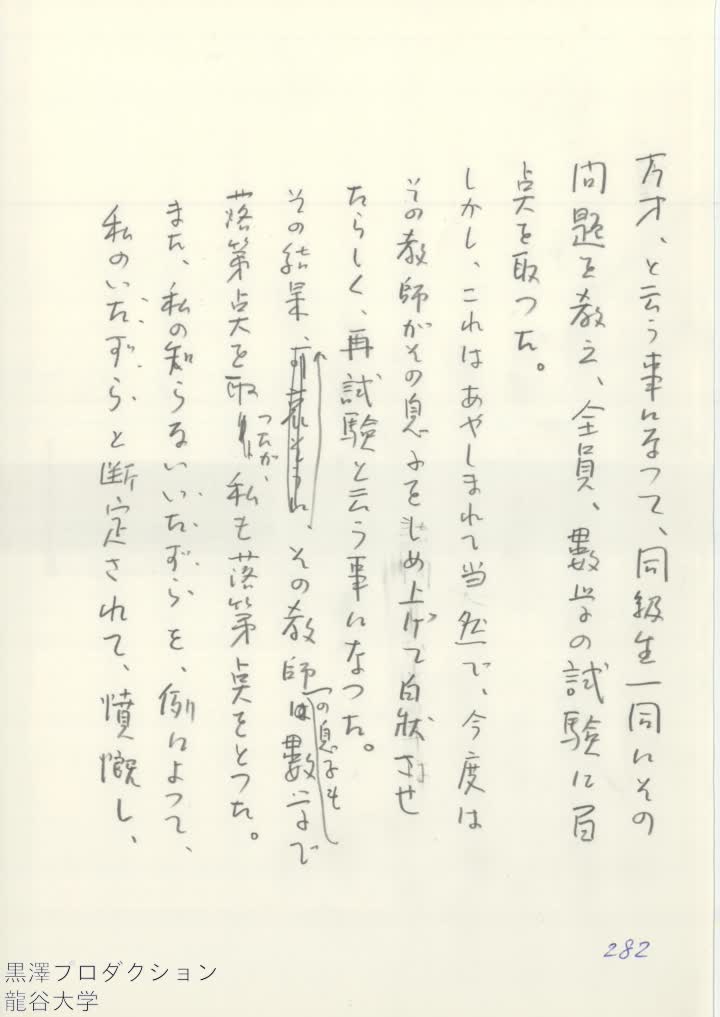 万才、と云う事になって、同級生一同にその
問題を教え、全員、數学の試験に百
点を取った。
しかし、これはあやしまれて当然で、今度は
その教師がその息子をしめ上げて白狀させ
たらしく、再試験と云う事になった。
その結果、その教師の息子も數学で
落第点を取ったが、私も落第点をとった。
また、私の知らないいたずらを、例によって、
私のいたずらと断定されて、憤慨し、
282
黒澤プロダクション
龍谷大学